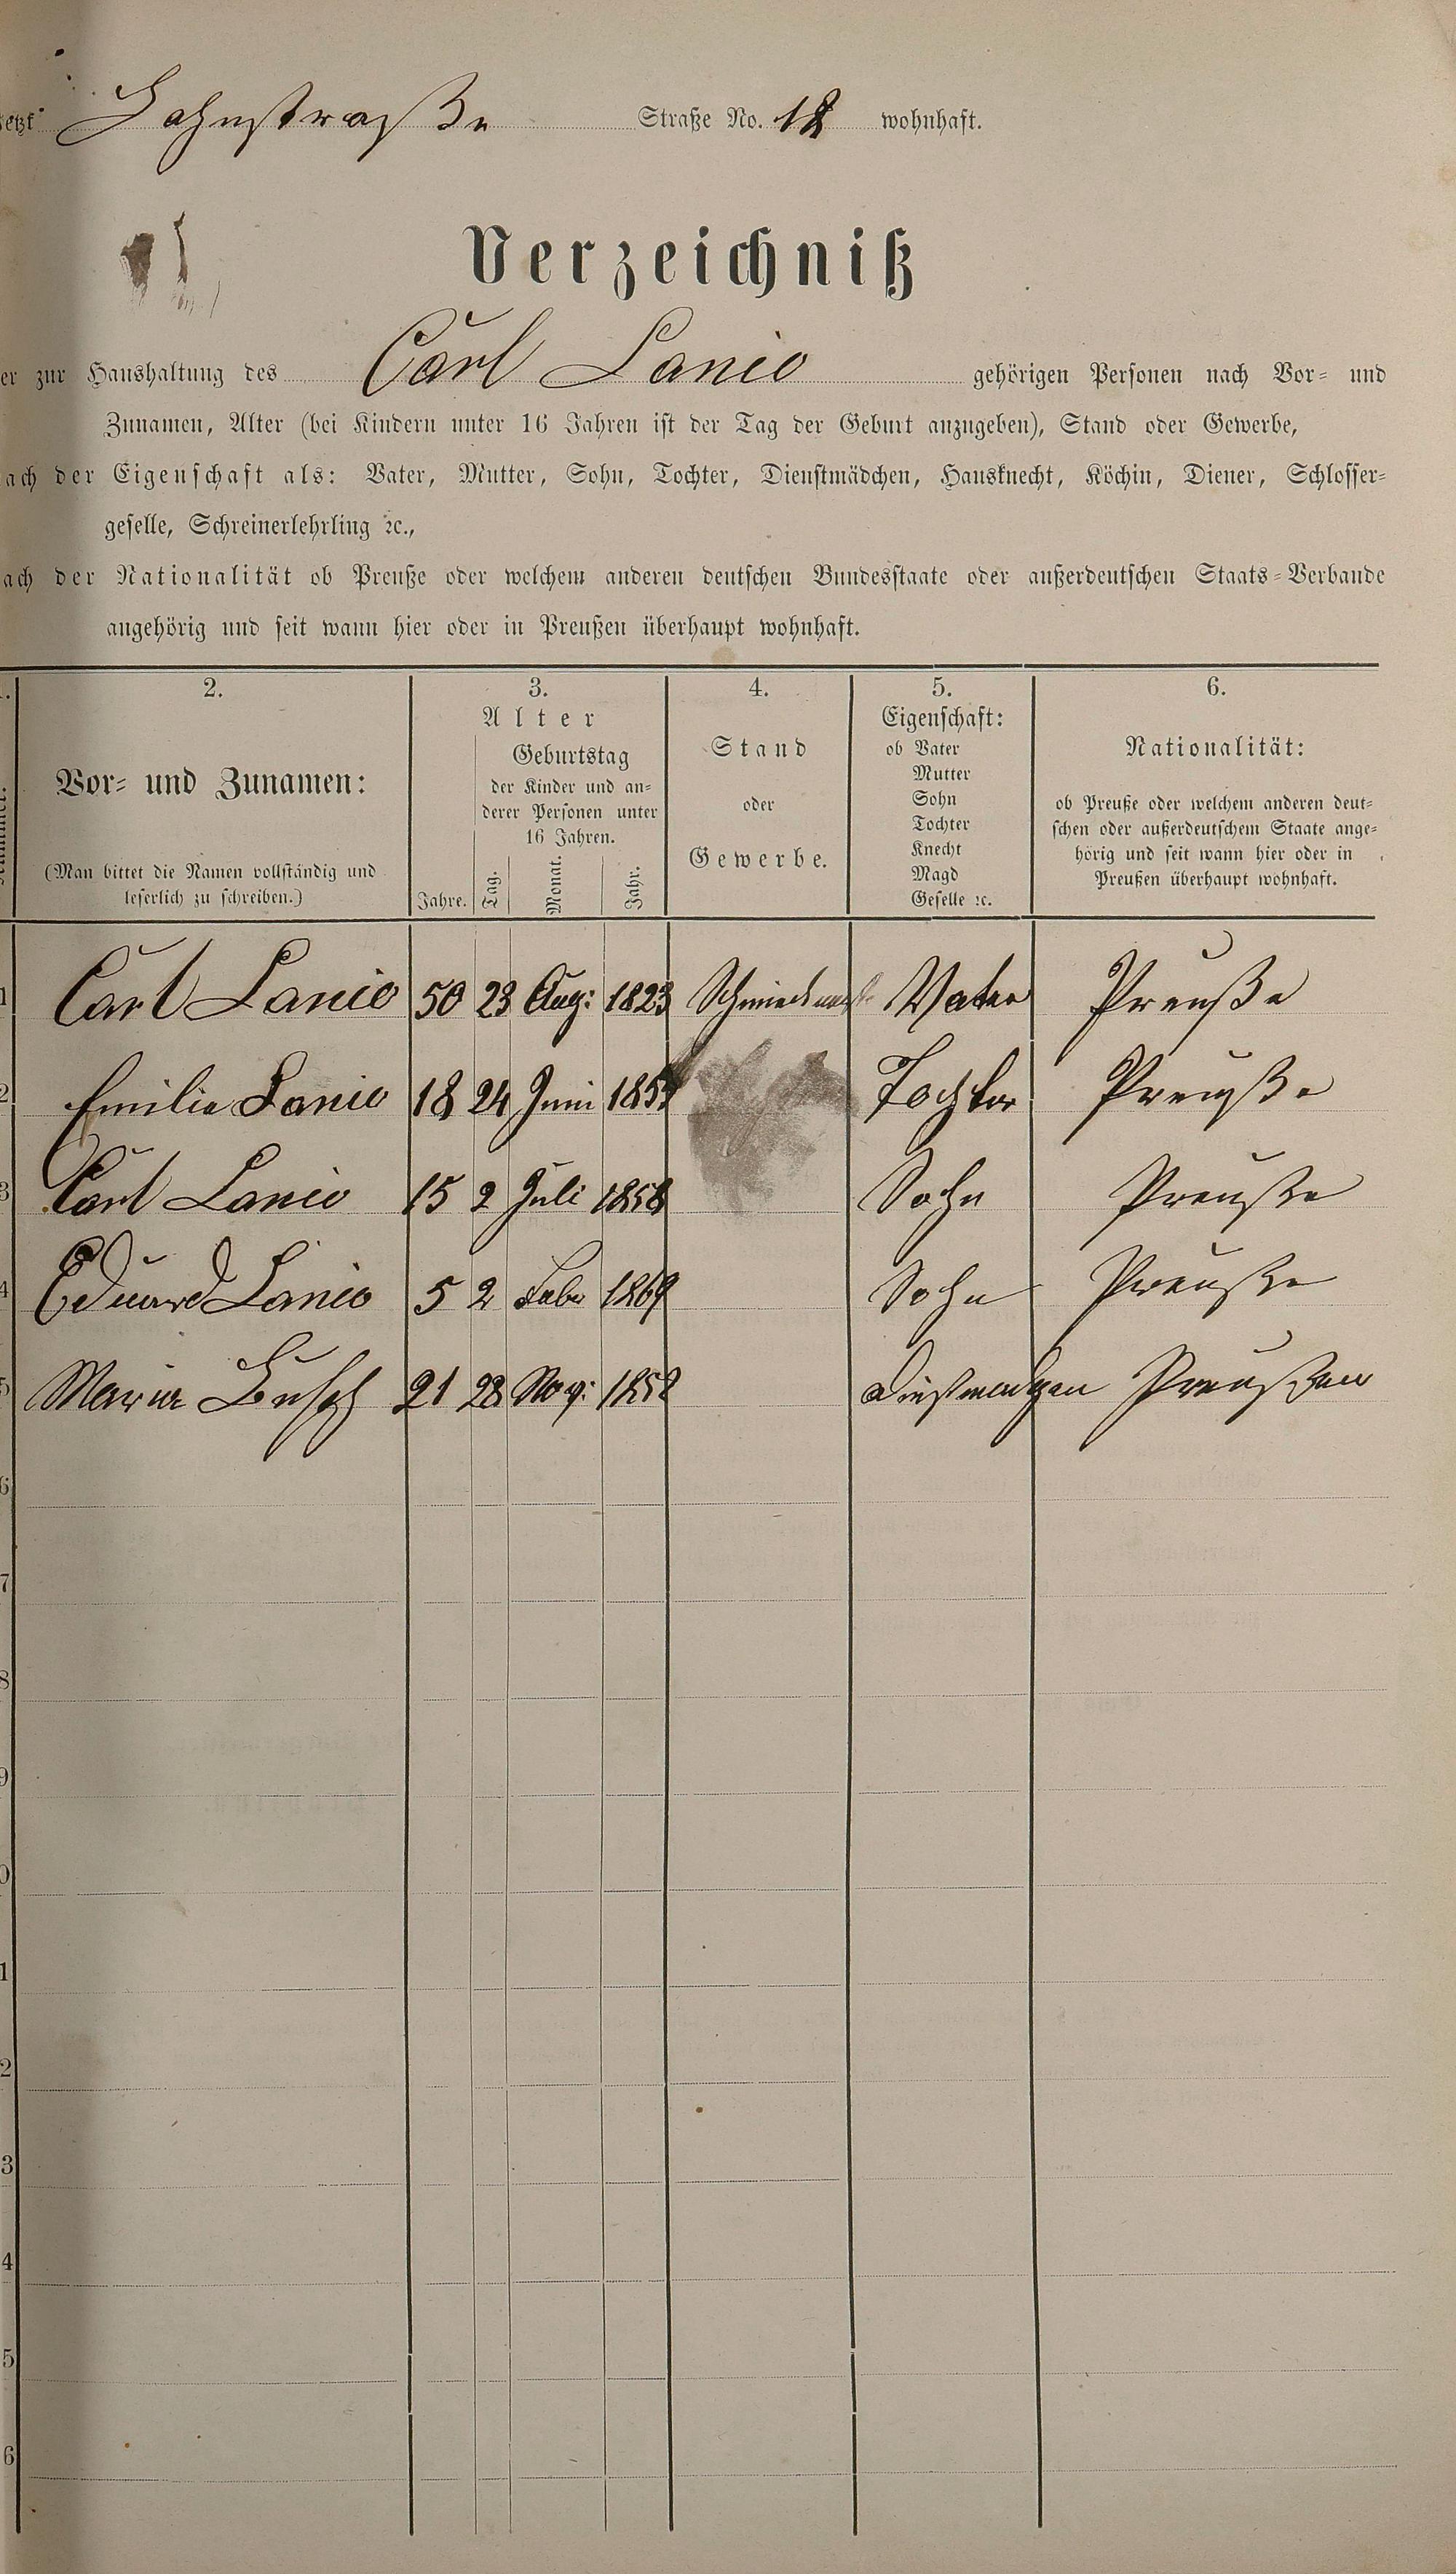 jetzt Hahnstraße Straße No. 12 wohnhaft.
Verzeichniß
er zur Haushaltung des Carl Lanio gehörigen Personen nach Vor- und
Zunamen, Alter (bei Kindern unter 16 Jahren ist der Tag der Geburt anzugeben), Stand oder Gewerbe,
ach der Eigenschaft als: Vater, Mutter, Sohn, Tochter, Dienstmädchen, Hausknecht, Köchin, Diener, Schlosser-
geselle, Schreinerlehrling ꝛc.,
ach der Nationalität ob Preuße oder welchem anderen deutschen Bundesstaate oder außerdeutschen Staats-Verbande
angehörig und seit wann hier oder in Preußen überhaupt wohnhaft.
2. 3. 4. 5. 6.
Vor- und Zunamen:
(Man bittet die Namen vollständig und
leserlich zu schreiben.)
Alter
Geburtstag
der Kinder und an-
derer Personen unter
16 Jahren.
Jahre. Tag. Monat. Jahr.
Stand
oder
Gewerbe.
Eigenschaft:
ob Vater
Mutter
Sohn
Tochter
Knecht
Magd
Geselle ꝛc.
Nationalität:
ob Preuße oder welchem anderen deut-
schen oder außerdeutschem Staate ange-
hörig und seit wann hier oder in
Preußen überhaupt wohnhaft.
1 Carl Lanio 50 23 Aug: 1823 Vater Preuße
2 Emilie Lanio 18 24 Juni Tochter Preuße
3 Carl Lanio 15 2 Juli 1858 Sohn Preuße
4 Eduard Lanio 5 2 Febr 1869 Sohn Preuße
5 Maria Busch 21 28 Nov: 1852 Preußen
6
7
8
9
0
1
2
3
4
5
6